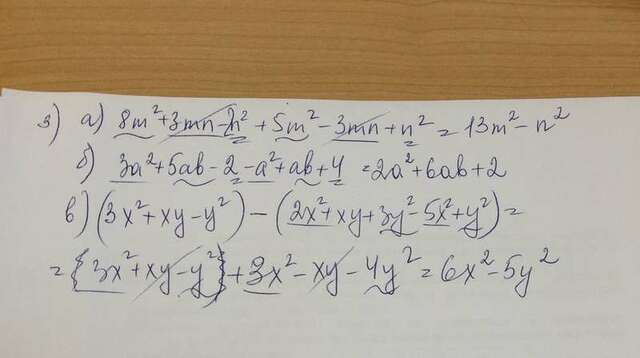 3) а) 8m² + 3mn - 2n² + 5m² - 3mn + n² = 13m² - n²
б) 3a² + 5ab - 2 - a² + ab + 4 = 2a² + 6ab + 2
в) (3x² + xy - y²) - (2x² + xy + 3y² - 5x² + y²) =
= {3x² + xy - y²} + 3x² - xy - 4y² = 6x² - 5y²